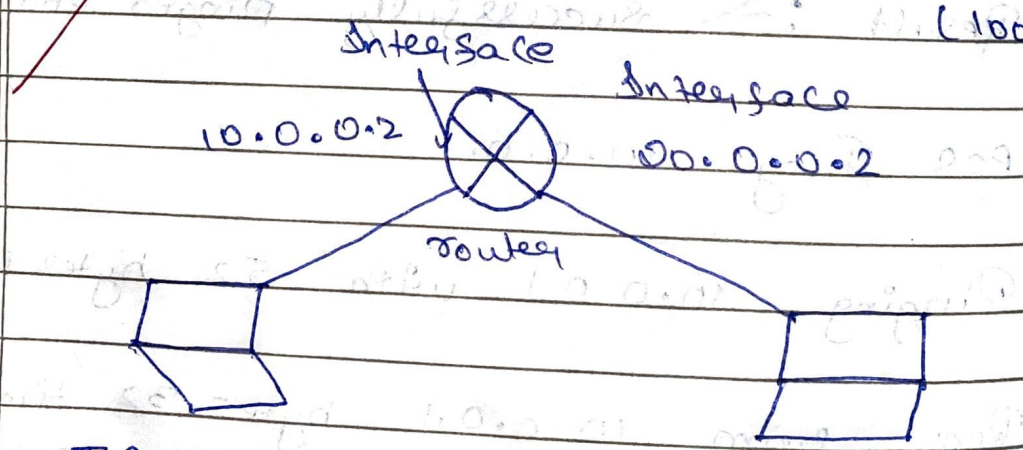 (100
Interface
Interface
10.0.0.2
20.0.0.2
router